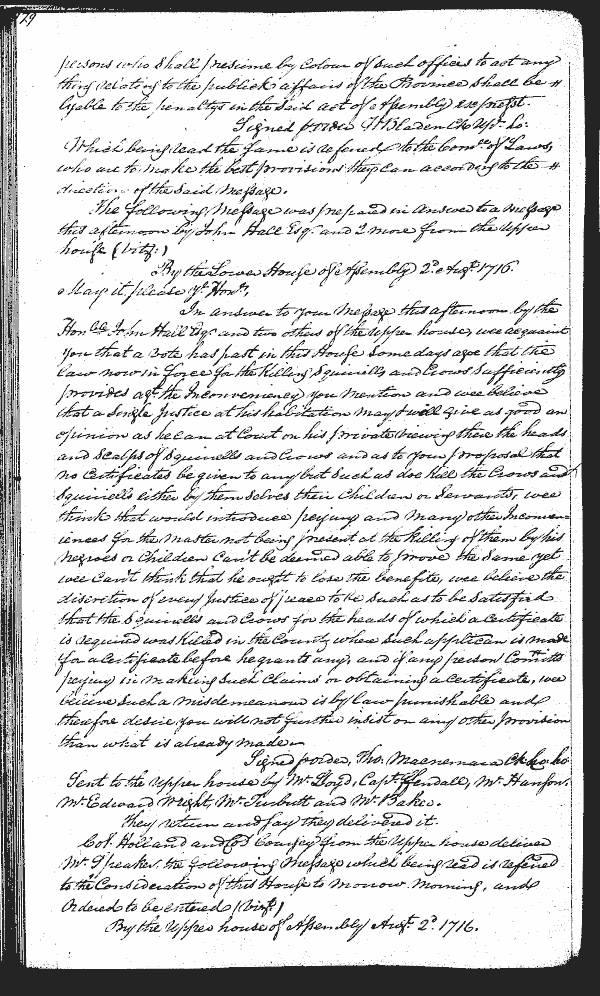 129
persons who shall presume by Colour of such offices to act any
thing relating to the publick affairs of the Province shall be
lyable to the penaltys in the said act of Assembly exprest.
Signed p order W Bladen Cl. Upr. ho:
Which being read the same is referred to the Comtee of Laws,
who are to make the best provisions they can according to the
direction of the said Message.
The following Message was prepared in answer to a Message
this afternoon by John Hall Esqr. and 2 more from the Upper
house (vizt.)
By the Lower House of Assembly 2d. Augt. 1716.
May it please yr. Honrs,
In answer to your Message this afternoon by the
Honble John Hall Esqr. and two others of the Upper house, wee acquaint
you that a vote has past in this House some days agoe that the
Law now in force for the Killing Squirrells and Crows Sufficiently
provides agt. the Inconveniency you Mention and wee believe
that a Single Justice at his habitation may & will give as good an
opinion as he can at Court on his private viewing there the heads
and Scalps of Squirrells and Crows and as to your proposal that
no Certificates be given to any but Such as doe kill the Crows and
Squirrells either by themselves their Children or Servants, wee
think that would introduce perjury and many other Inconven=
iences for the Master not being present at the killing of them by his
negroes or Children Can't be deemed able to prove the Same yet
wee Can't think that he ought to lose the benefite, wee believe the
discretion of every Justice of peace to be Such as to be Satisfied
that the Squirrells and Crows for the heads of which a Certificate
is required was killed in the County where Such applican is made
for a Certificate before he grants any, and if any person Comitts
perjury in making Such Claims or obtaining a Certificate, wee
believe Such a misdemeanour is by law punishable and
therefore desire you will not further insist on any other provision
than what is already made
Signed p order, Tho. Macnemara Cl. Lo. ho
Sent to the Upper house by Mr. Lloyd, Capt. Kendall, Mr. Hanson,
Mr. Edward Wright, Mr. Turbutt and Mr. Baker.
They return and say they delivered it.
Col. Holland and Col Coursey from the Upper house deliver
Mr. Speaker the following Message which being read is referred
to the Consideration of this House to morrow morning, and
Ordered to be entered (vizt.)
By the Upper house of Assembly Augt. 2d. 1716.